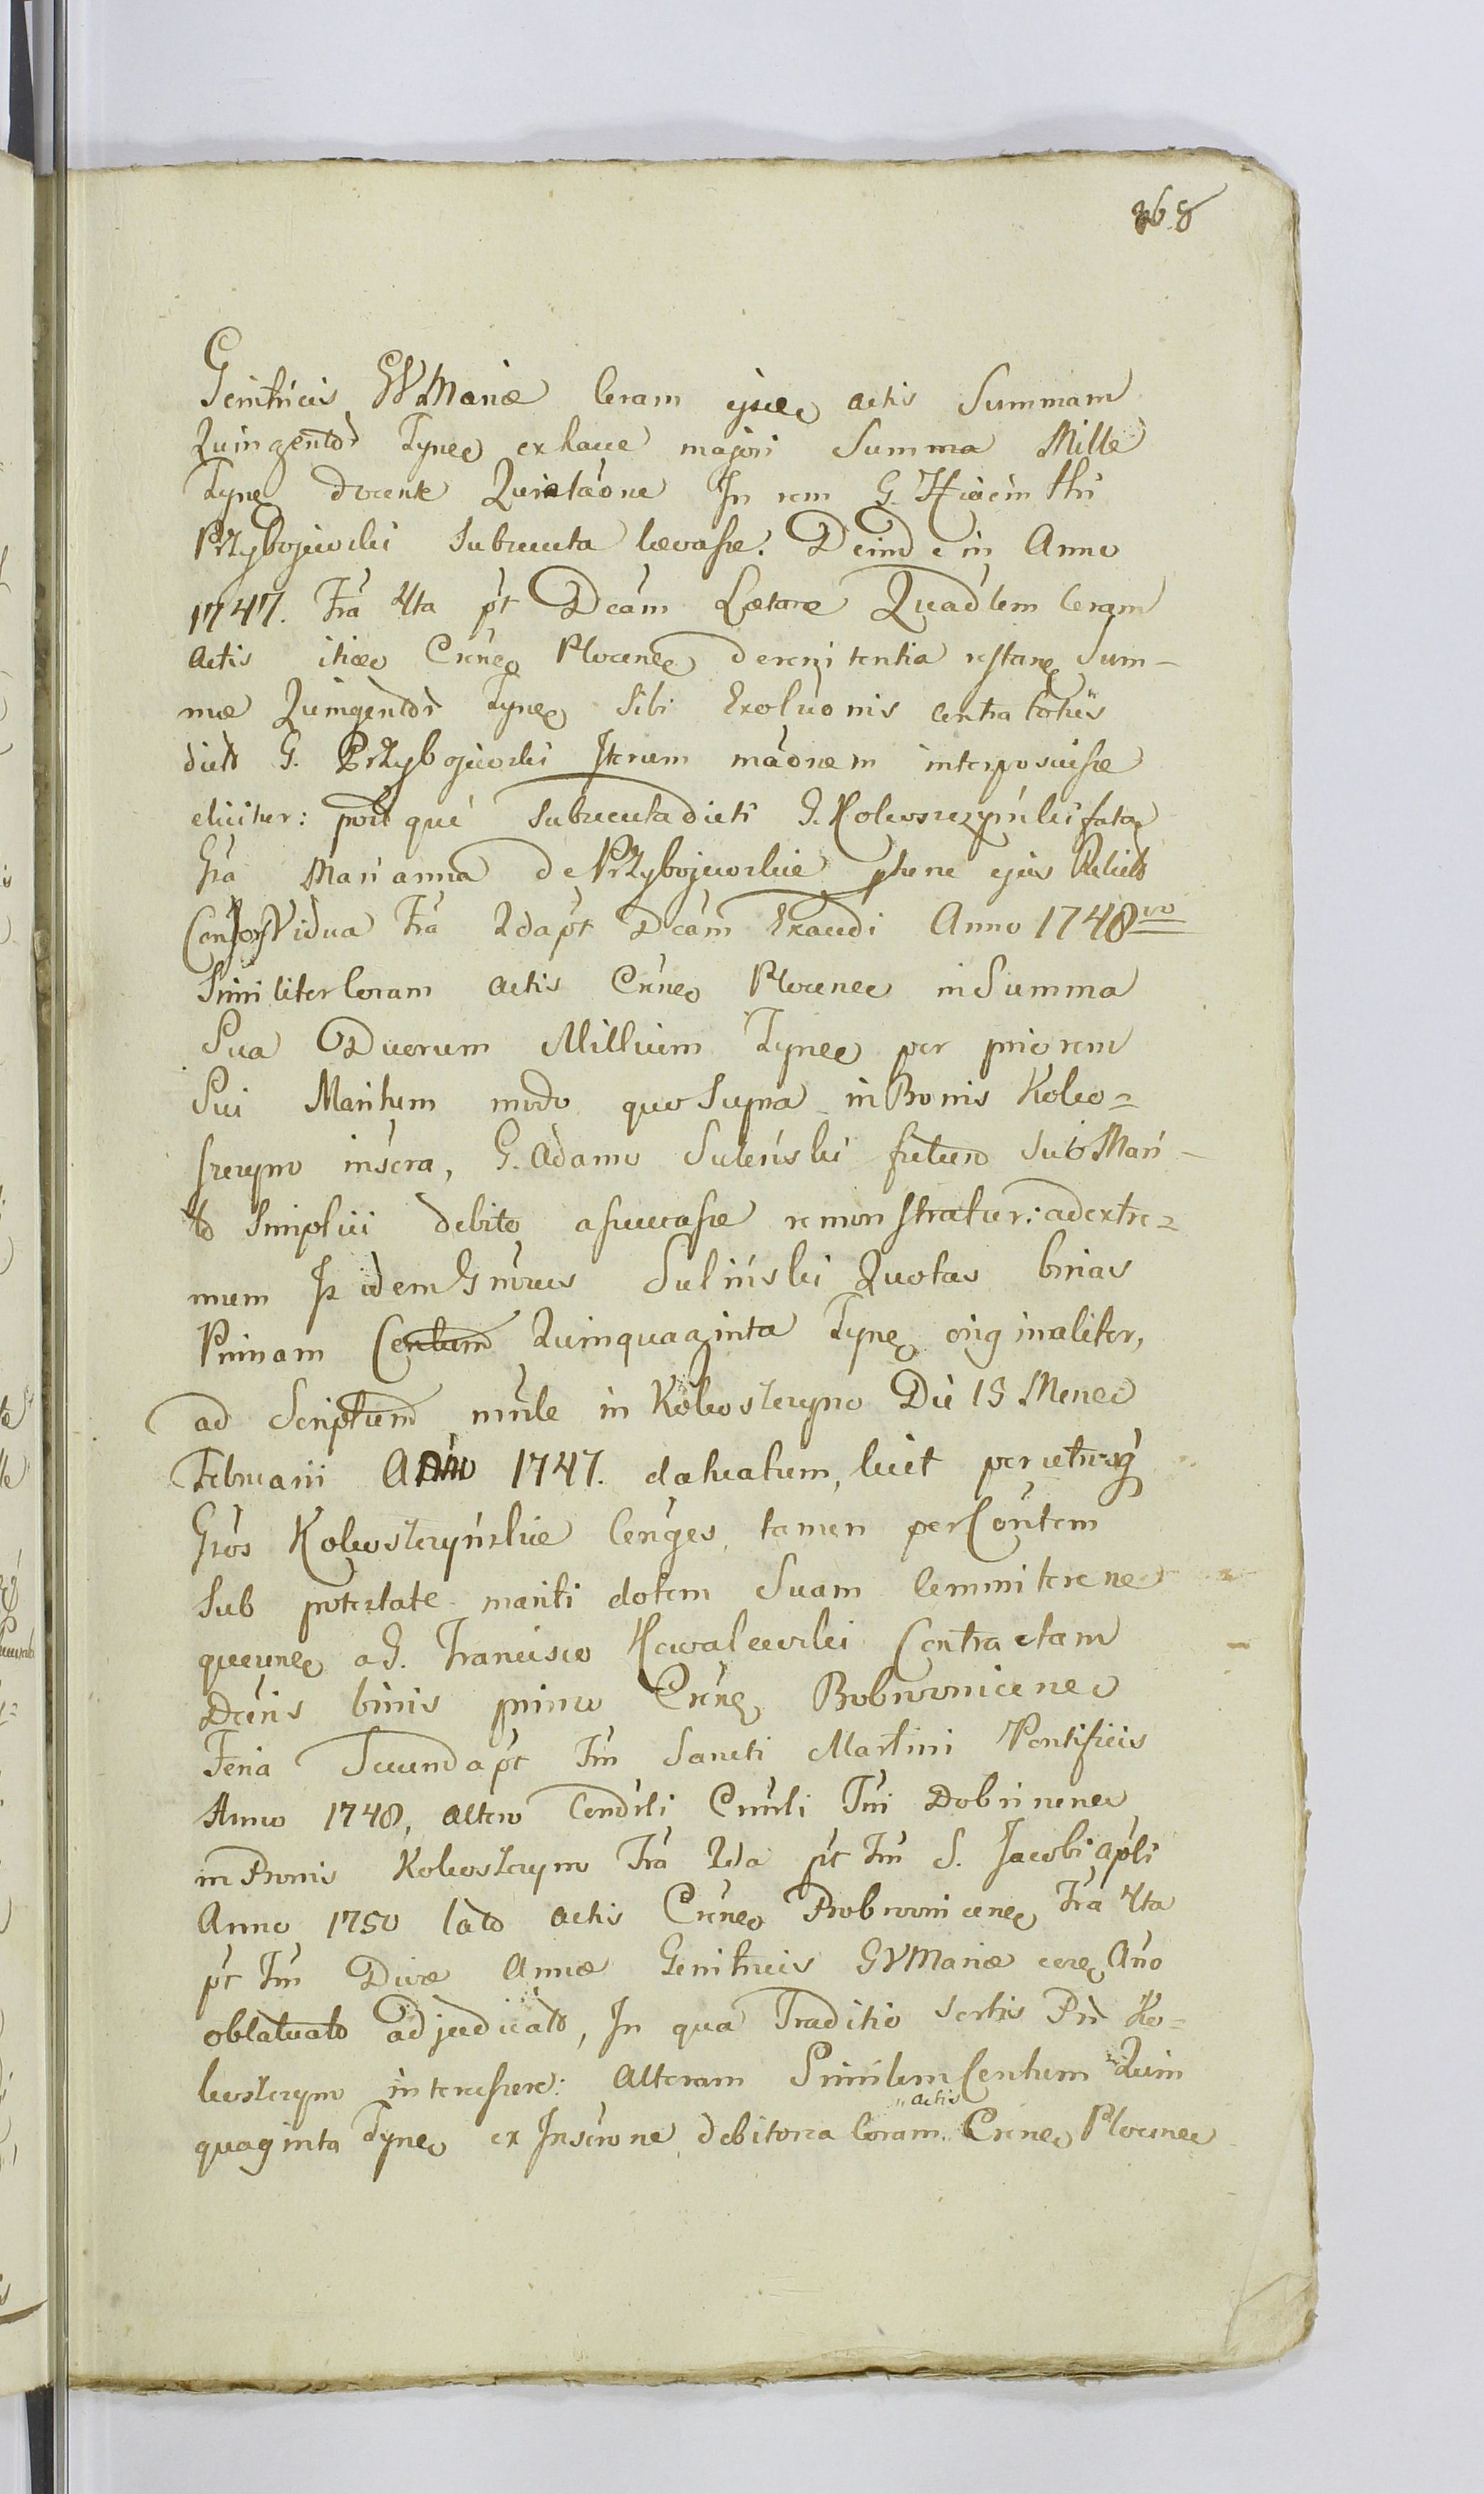 368
Genitricis GVMariæ Coram ijsdem actis Summam
Quingentor Tynes ex hacce majori Summa Mille
Tynes docente Quietaõne In rem G. Hiacinthi
Przybojewski Subsecuta levasse. Deinde in Anno
1747. Fra 4ta pt Dcam Lætare Quadlem Coram
Actis itidem Crens Plocens de renitentia restans Sum-
mæ Quingentor Tynes Sibi Exolvonis contra
dicto G. Przybojewski Iterum maõnem interposuisse
elicitur: post quæ Subsecuta dicti G. Koloszczynski fata
Gsa Marianna de Przybojewskie phnne ejus Relicta
Consors Vidua Fra 2da pt Dcam Exaudi Anno 1748vo
Similiter Coram actis Crens Plocens in Summa
Sua Duorum Millium Tynes per priorem
Sui Maritum modo quo Supra in Bonis Kolo=
szczyno inscra, G. Adamo Suleński futuro Suo Mari-
to Simplici debito assecurasse remonstratur: ad extre=
mum Is idem Gnrosus Suliński Quotas binas
Primam Centum Quinquaginta Tynes originaliter,
ad Scriptum mnle in Koloszczyno Die 15 Mensis
Februarii Anno 1747. datuatum, licet per utrosq
Gsos Koloszczyńskie Conges, tamen per Contem
Sub potestate mariti dotem Suam Committere ne
queunes a G. Francisco Kowalewski Contractam
Dcris binis primo Crens Bobrovnicens
Feria Secunda pt Fm Sancti Martini Pontificis
Anno 1748, altero Condcsli Cmmsli Tri Dobrinens
in Bonis Koloszczyno Fra 2da pt Fm S. Jacobi Apli
Anno 1750 lato actis Crens Bobrovnicens Fra 4ta
pt Fm Divæ Annæ Genitricis GVMariæ eors Ano
oblatuato adjudicato, In qua Traditio Sortis Pri Ko=
loszczyno intercessere: Alteram Similem Centum Quin
quaginta Tynes ex Inscrone debitoria Coram actis Crens Plocens